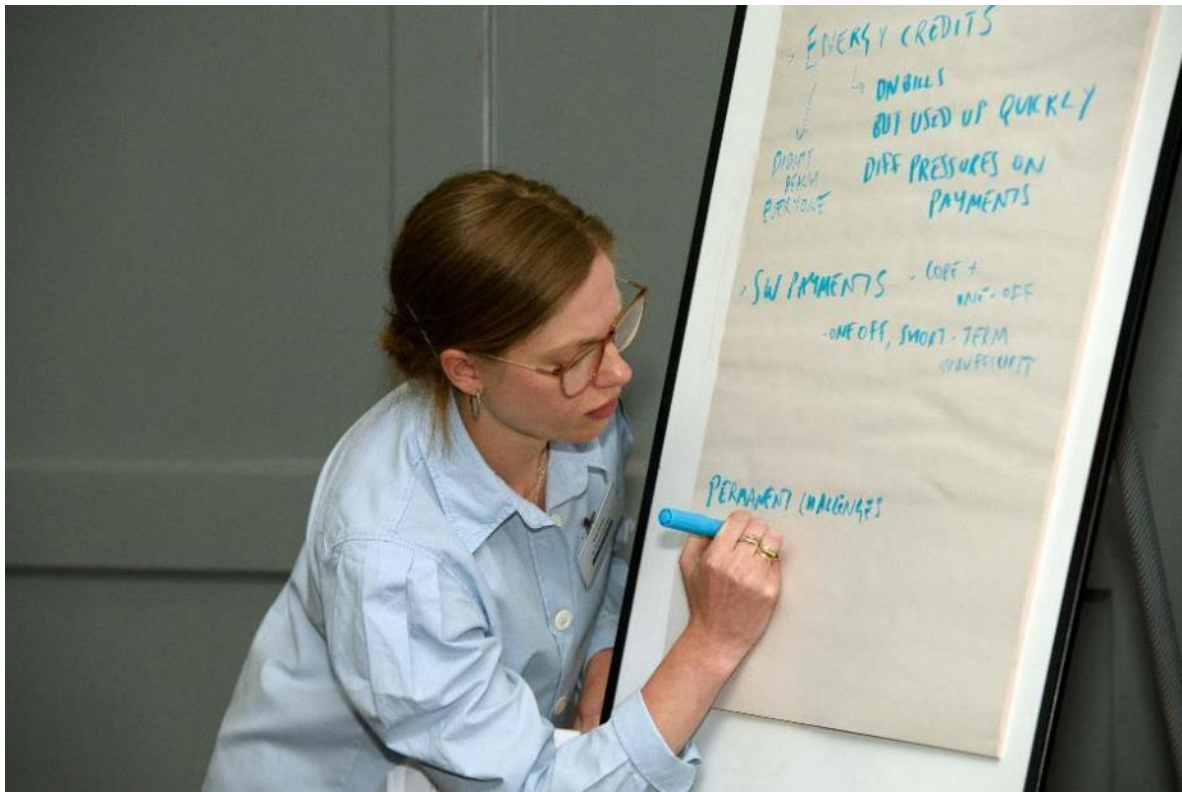 > ENERGY CREDITS
↳ ON BILLS
BUT USED UP QUICKLY
DIDNT
REACH
EVERYONE
DIFF PRESSURES ON
PAYMENTS
> SW PAYMENTS - CORE +
ONE-OFF
- ONE OFF, SHORT-TERM
INSUFFICIENT
PERMANENT CHALLENGES